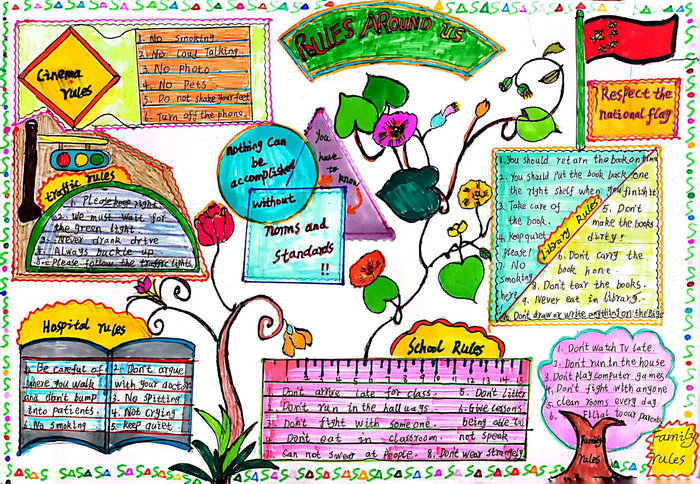 RULES AROUND US
Cinema
rules
1. No smoking
2. No Loud Talking.
3. No photo
4. No pets
5. Do not shake your feet
6. Turn off the phone.
Respect the
national flag
traffic rules
1. Please keep right
2. We must wait for
the green light
3. Never drank drive
4. Always buckle up
5. Please follow the traffic lights
nothing can
be
accomplished
without
norms and
standards
!!
You
have
to
know
1. You should return the book on time
2. You should Put the book back one
the right shelf when you finish it
3. Take care of
the book.
4. keep quiet
please!
7. NO
smoking
here
Library Rules
5. Don't
make the books
dirty!
6. Don't carry the
book home.
8. Don't tear the books.
9. Never eat in library.
10. Don't draw or write anything on the
Hospital rules
1. Be careful of
where you walk
and don't bump
into patients.
1. No smoking
2. Don't argue
with your doctor
3. No spitting
4. Not crying
5 keep quiet
School Rules
1 2 3 4 5 6 7 8 9 10 11 12 13 14 15
1. Don't arrive late for class. 5. Don't Litter
2. Don't run in the hallways. 6. Give lessons
3. Don't fight with someone. being able to
4. Dont eat in classroom not speak
7. Can not swear at People. 8. Don't wear strangely
1. Don't watch Tv late.
2. Don't run in the house
3. Don't play computer games
4. Don't fight with anyone
5. clean rooms every day.
6. Filial to our parents
Family
rules
Family
rules